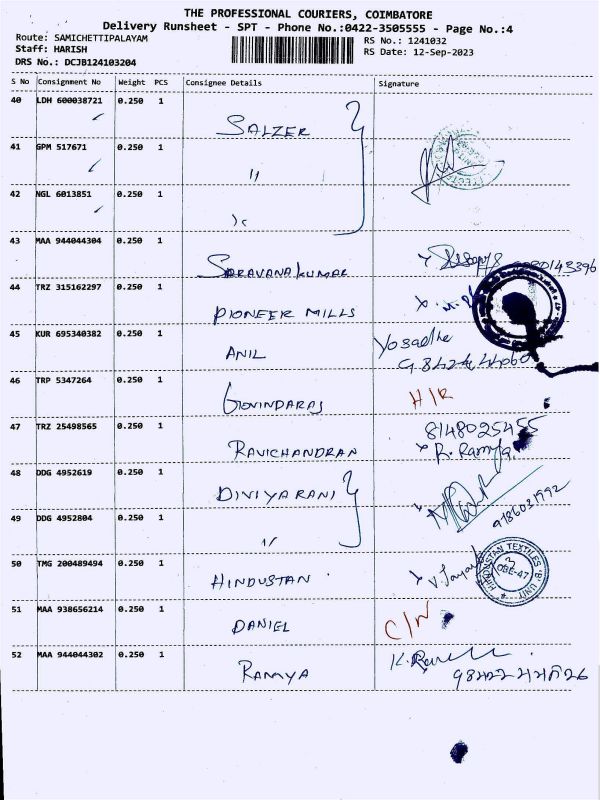 THE PROFESSIONAL COURIERS, COIMBATORE
Delivery Runsheet - SPT - Phone No.:0422-3505555 - Page No.:4
Route: SAMICHETTIPALAYAM RS No.: 1241032
Staff: HARISH RS Date: 12-Sep-2023
DRS No.: DCJB124103204
S No Consignment No Weight PCS Consignee Details Signature
40 LDH 600038721 0.250 1 SALZER
41 GPM 517671 0.250 1 "
42 NGL 6013851 0.250 1 "
43 MAA 944044304 0.250 1 SARAVANAKUMAR
44 TRZ 315162297 0.250 1 PIONEER MILLS
45 KUR 695340382 0.250 1 ANIL Yosadha
46 TRP 5347264 0.250 1 GOVINDARAJ H/R
47 TRZ 25498565 0.250 1 RAVICHANDRAN 8148025455
R. Ramya
48 DDG 4952619 0.250 1 DIVIYARANI
49 DDG 4952804 0.250 1 " 9186031992
50 TMG 200489494 0.250 1 HINDUSTAN HINDUSTAN TEXTILES 'B' UNIT
51 MAA 938656214 0.250 1 DANIEL C/N
52 MAA 944044302 0.250 1 RAMYA